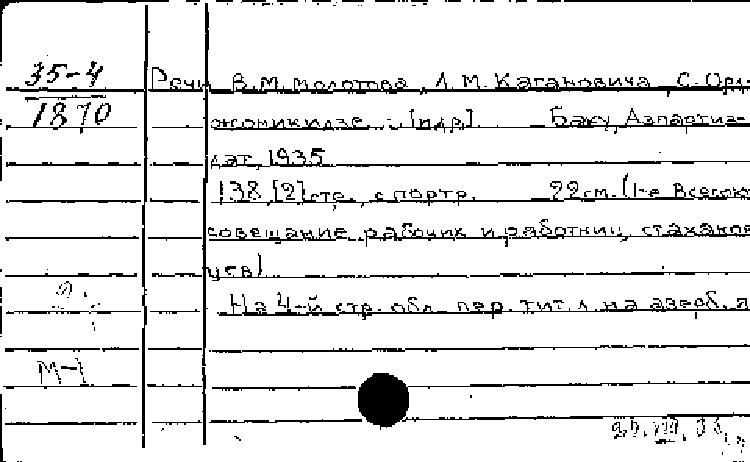 35-4
1870
Речи В.М. Молотова, Л.М. Кагановича, С. Орд-
жоникидзе и [др.] Баку, Азпартиз-
дат, 1935
138 [2] стр., с портр. 22 см. (1-е Всесоюз
совещание рабочих и работниц, стаханов
цев)
На 4-й стр. обл. пер. тит. л. на азерб. я
М-1